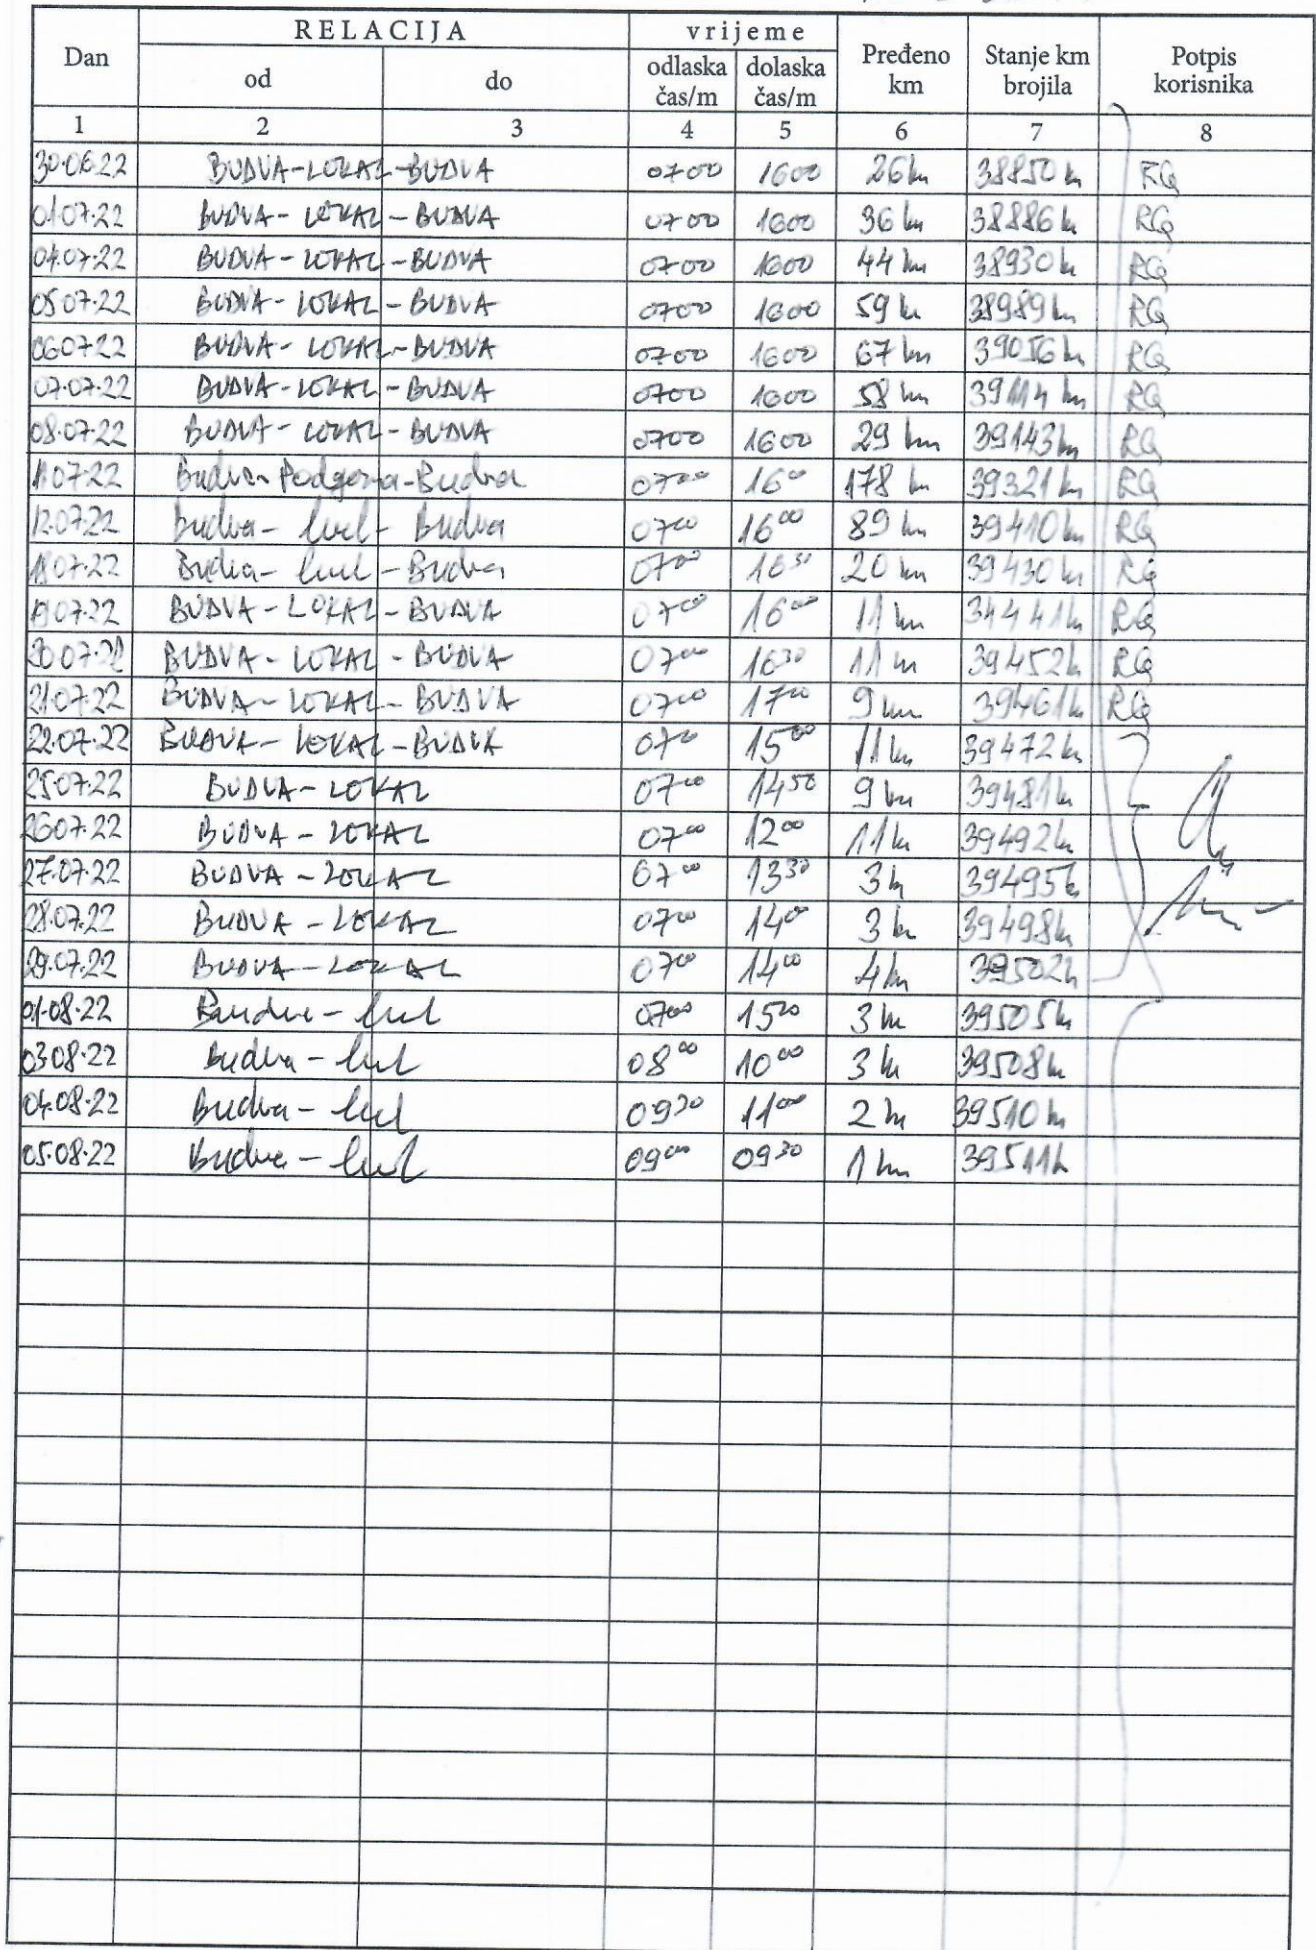 Dan RELACIJA vrijeme Pređeno km Stanje km brojila Potpis korisnika
od do odlaska čas/m dolaska čas/m
1 2 3 4 5 6 7 8
30.06.22 BUDVA-LOKAL-BUDVA 0700 1600 26 km 38850 km RQ
01.07.22 BUDVA - LOKAL - BUDVA 0700 1600 36 km 38886 km RQ
04.07.22 BUDVA - LOKAL - BUDVA 0700 1600 44 km 38930 km RQ
05.07.22 BUDVA - LOKAL - BUDVA 0700 1600 59 km 38989 km RQ
06.07.22 BUDVA - LOKAL - BUDVA 0700 1600 67 km 39056 km RQ
07.07.22 BUDVA - LOKAL - BUDVA 0700 1600 58 km 39114 km RQ
08.07.22 BUDVA - LOKAL - BUDVA 0700 1600 29 km 39143 km RQ
11.07.22 Budva-Podgorica-Budva 07⁰⁰ 16⁰⁰ 178 km 39321 km RQ
12.07.22 Budva - lokal - Budva 07⁰⁰ 16⁰⁰ 89 km 39410 km RQ
18.07.22 Budva - lokal - Budva 07⁰⁰ 16³⁰ 20 km 39430 km RQ
19.07.22 BUDVA - LOKAL - BUDVA 07⁰⁰ 16⁰⁰ 11 km 34441 km RQ
20.07.22 BUDVA - LOKAL - BUDVA 07⁰⁰ 16³⁰ 11 km 39452 km RQ
21.07.22 BUDVA - LOKAL - BUDVA 07⁰⁰ 17⁰⁰ 9 km 39461 km RQ
22.07.22 BUDVA - LOKAL - BUDVA 07⁰⁰ 15⁰⁰ 11 km 39472 km
25.07.22 BUDVA - LOKAL 07⁰⁰ 14⁵⁰ 9 km 39481 km
26.07.22 BUDVA - LOKAL 07⁰⁰ 12⁰⁰ 11 km 39492 km
27.07.22 BUDVA - LOKAL 07⁰⁰ 13³⁰ 3 km 39495 km
28.07.22 BUDVA - LOKAL 07⁰⁰ 14⁰⁰ 3 km 39498 km
29.07.22 BUDVA - LOKAL 07⁰⁰ 14⁰⁰ 4 km 39502 km
01.08.22 Budva - lokal 07⁰⁰ 15²⁰ 3 km 39505 km
03.08.22 Budva - lokal 08⁰⁰ 10⁰⁰ 3 km 39508 km
04.08.22 Budva - lokal 09³⁰ 11⁰⁰ 2 km 39510 km
05.08.22 Budva - lokal 09⁰⁰ 09³⁰ 1 km 39511 km